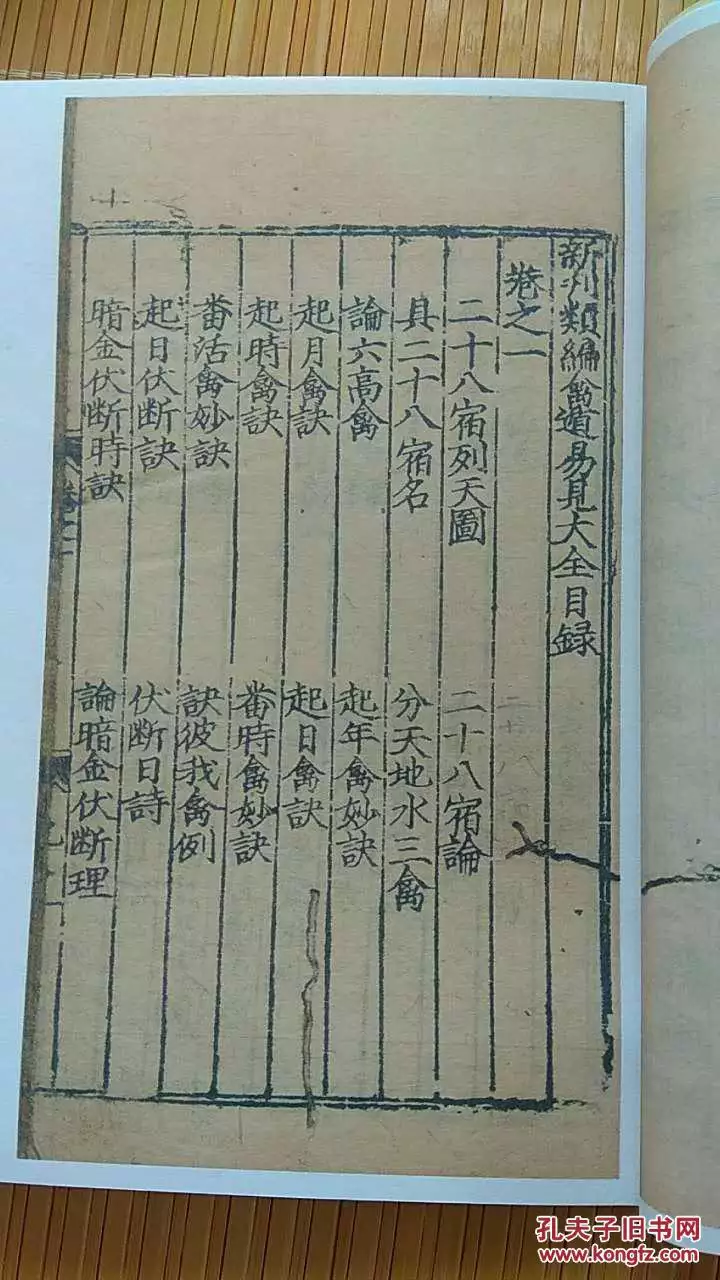 新刋類編禽遁易見大全目録
卷之一
二十八宿列天圖
二十八宿論
具二十八宿名
分天地水三禽
論六高禽
起年禽妙訣
起月禽訣
起日禽訣
起時禽訣
畨時禽妙訣
畨活禽妙訣
訣彼我禽例
起日伏断訣
伏断日詩
暗金伏断時訣
論暗金伏断理
孔夫子旧书网
www.kongfz.com